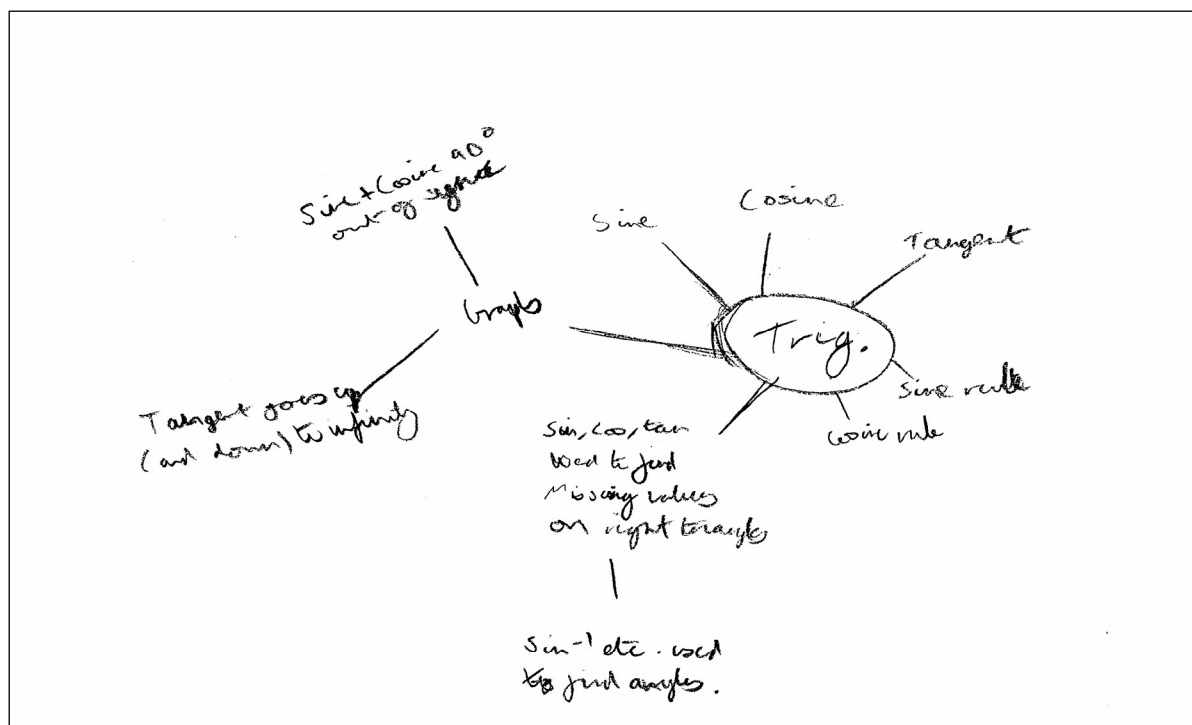 Sine + Cosine 90°
out of
Graphs
Tangent goes up
(and down) to infinity
Sine
Cosine
Tangent
Trig.
Sine rule
cosine rule
Sin, Cos, tan
used to find
Missing values
on right triangles
Sin⁻¹ etc. used
to find angles.